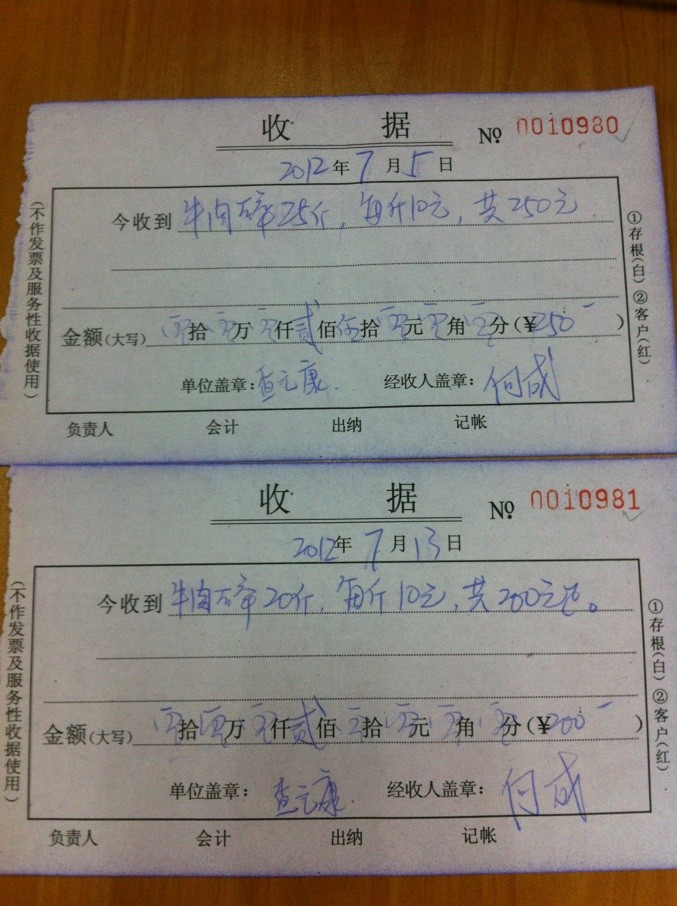 收 据 № 0010980
2012年7月5日
今收到 牛肉碎25斤，每斤10元，共250元
金额(大写) 零拾零万零仟贰佰伍拾零元零角零分(¥250—)
单位盖章：查元康 经收人盖章：何成
负责人 会计 出纳 记帐
(不作发票及服务性收据使用)
①存根(白) ②客户(红)
收 据 № 0010981
2012年7月13日
今收到 牛肉碎20斤，每斤10元，共200元。
金额(大写) 零拾零万零仟贰佰零拾零元零角零分(¥200—)
单位盖章：查元康 经收人盖章：何成
负责人 会计 出纳 记帐
(不作发票及服务性收据使用)
①存根(白) ②客户(红)